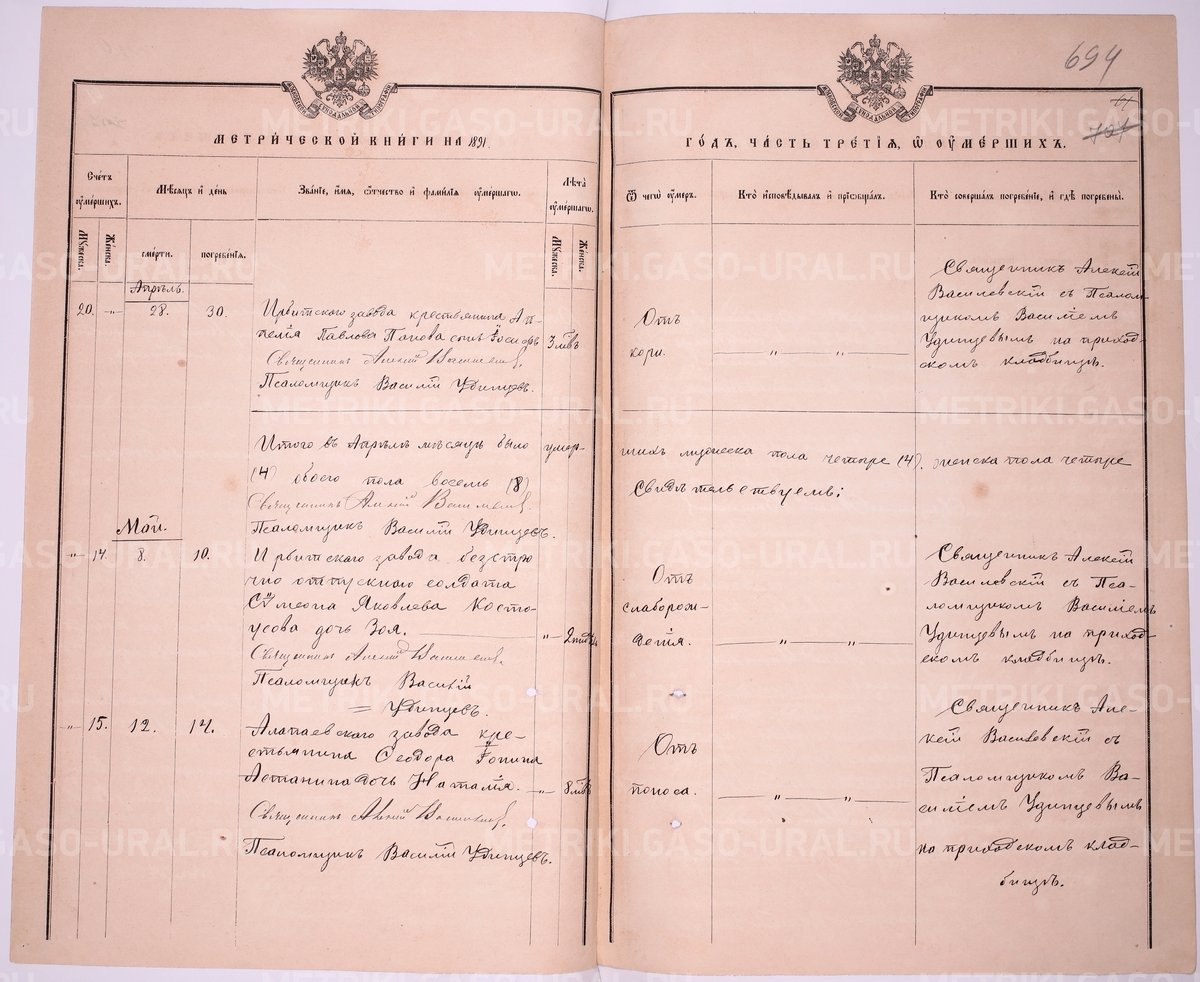 694
МЕТРИЧЕСКОЙ КНИГИ НА 1891.
ГОДЪ, ЧАСТЬ ТРЕТІЯ, Ѿ ОУМЕРШИХЪ.
Счетъ оумершихъ.
Мѣсяцъ и день
Званіе, имя, ѿчество и фамилія оумершаго.
Лѣта оумершаго.
Ѿ чего оумеръ.
Кто исповѣдывалъ и пріобщалъ.
Кто совершалъ погребеніе, и гдѣ погребены.
Мужеска.
Женска.
смерти.
погребенія.
Мужеска.
Женска.
Апрѣль.
20. " 28. 30.
Ирбитскаго завода крестьянина
Павлова Попова сынъ
3 мѣс.
Священникъ Алексій Василевскій.
Псаломщикъ Василій Удинцевъ.
Отъ
кори.
" "
Священникъ Алексій
Василевскій съ Псалом-
щикомъ Василіемъ
Удинцевымъ на приход-
скомъ кладбищѣ.
Итого въ Апрѣлѣ мѣсяцѣ было умер-
шихъ мужеска пола четыре (4). женска пола четыре
(4) обоего пола восемь (8)
Свидѣтельствуемъ:
Священникъ Алексій Василевскій.
Псаломщикъ Василій Удинцевъ.
Май.
" 14. 8. 10.
Ирбитскаго завода безсро
чно отпускнаго солдата
Сѵмеона Яковлева Косто-
усова дочь Зоя. "
Священникъ Алексій Василевскій.
Псаломщикъ Василій
= Удинцевъ.
Отъ
слаборож-
денія.
" "
Священникъ Алексій
Василевскій съ Пса-
ломщикомъ Василіемъ
Удинцевымъ на приход-
скомъ кладбищѣ.
" 15. 12. 14.
Алапаевскаго завода кре-
стьянина Ѳеодора
дочь Наталія. " 8 мѣс.
Священникъ Алексій Василевскій.
Псаломщикъ Василій Удинцевъ.
Отъ
поноса.
" "
Священникъ Але-
ксій Василевскій съ
Псаломщикомъ Ва-
силіемъ Удинцевымъ
на приходскомъ клад-
бищѣ.
METRIKI.GASO-URAL.RU